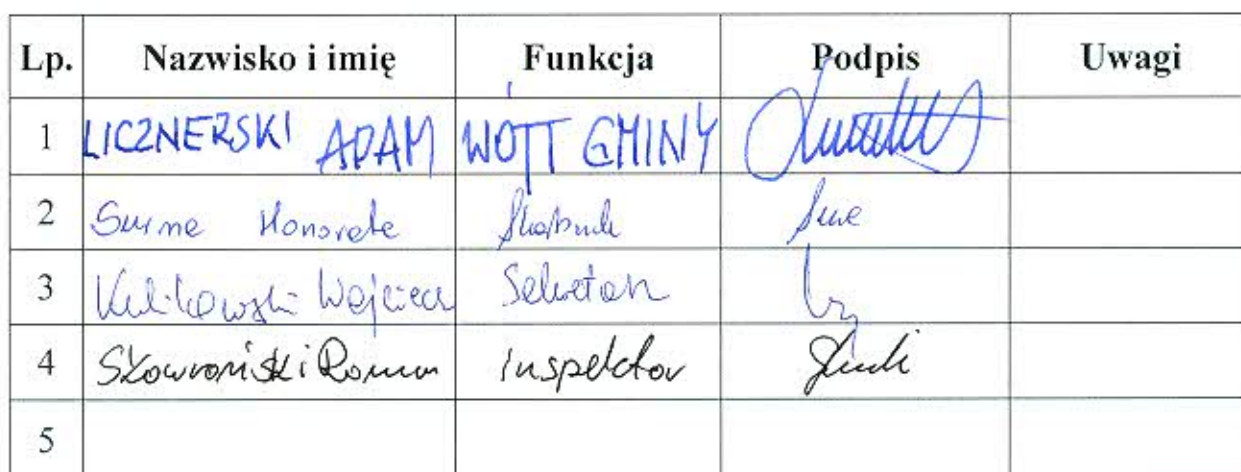 Lp. Nazwisko i imię Funkcja Podpis Uwagi
1 LICZNERSKI ADAM WÓJT GMINY
2 Honorata Skarbnik
3 Kulikowski Wojciech Sekretarz
4 Skowroński Roman Inspektor
5